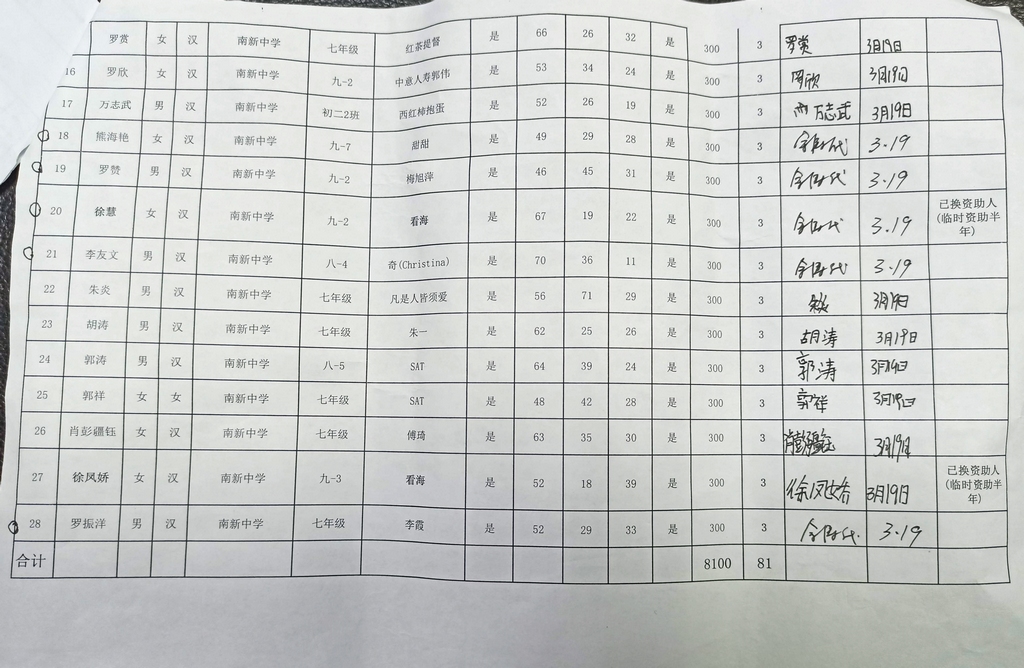 罗赏 女 汉 南新中学 七年级 红茶提督 是 66 26 32 是 300 3 罗赏 3月19日
16 罗欣 女 汉 南新中学 九-2 中意人寿郭伟 是 53 34 24 是 300 3 罗欣 3月19日
17 万志武 男 汉 南新中学 初二2班 西红柿抱蛋 是 52 26 19 是 300 3 万志武 3月19日
18 熊海艳 女 汉 南新中学 九-7 甜甜 是 49 29 28 是 300 3 3.19
19 罗赞 男 汉 南新中学 九-2 梅旭萍 是 46 45 31 是 300 3 3.19
20 徐慧 女 汉 南新中学 九-2 看海 是 67 19 22 是 300 3 3.19 已换资助人(临时资助半年)
21 李友文 男 汉 南新中学 八-4 奇(Christina) 是 70 36 11 是 300 3 3.19
22 朱炎 男 汉 南新中学 七年级 凡是人皆须爱 是 56 71 29 是 300 3 3月19日
23 胡涛 男 汉 南新中学 七年级 朱一 是 62 25 26 是 300 3 胡涛 3月19日
24 郭涛 男 汉 南新中学 八-5 SAT 是 64 39 24 是 300 3 郭涛 3月19日
25 郭祥 女 女 南新中学 七年级 SAT 是 48 42 28 是 300 3 郭祥 3月19日
26 肖彭疆钰 女 汉 南新中学 七年级 傅琦 是 63 35 30 是 300 3 肖彭疆钰 3月19日
27 徐凤娇 女 汉 南新中学 九-3 看海 是 52 18 39 是 300 3 徐凤娇 3月19日 已换资助人(临时资助半年)
28 罗振洋 男 汉 南新中学 七年级 李霞 是 52 29 33 是 300 3 3.19
合计 8100 81